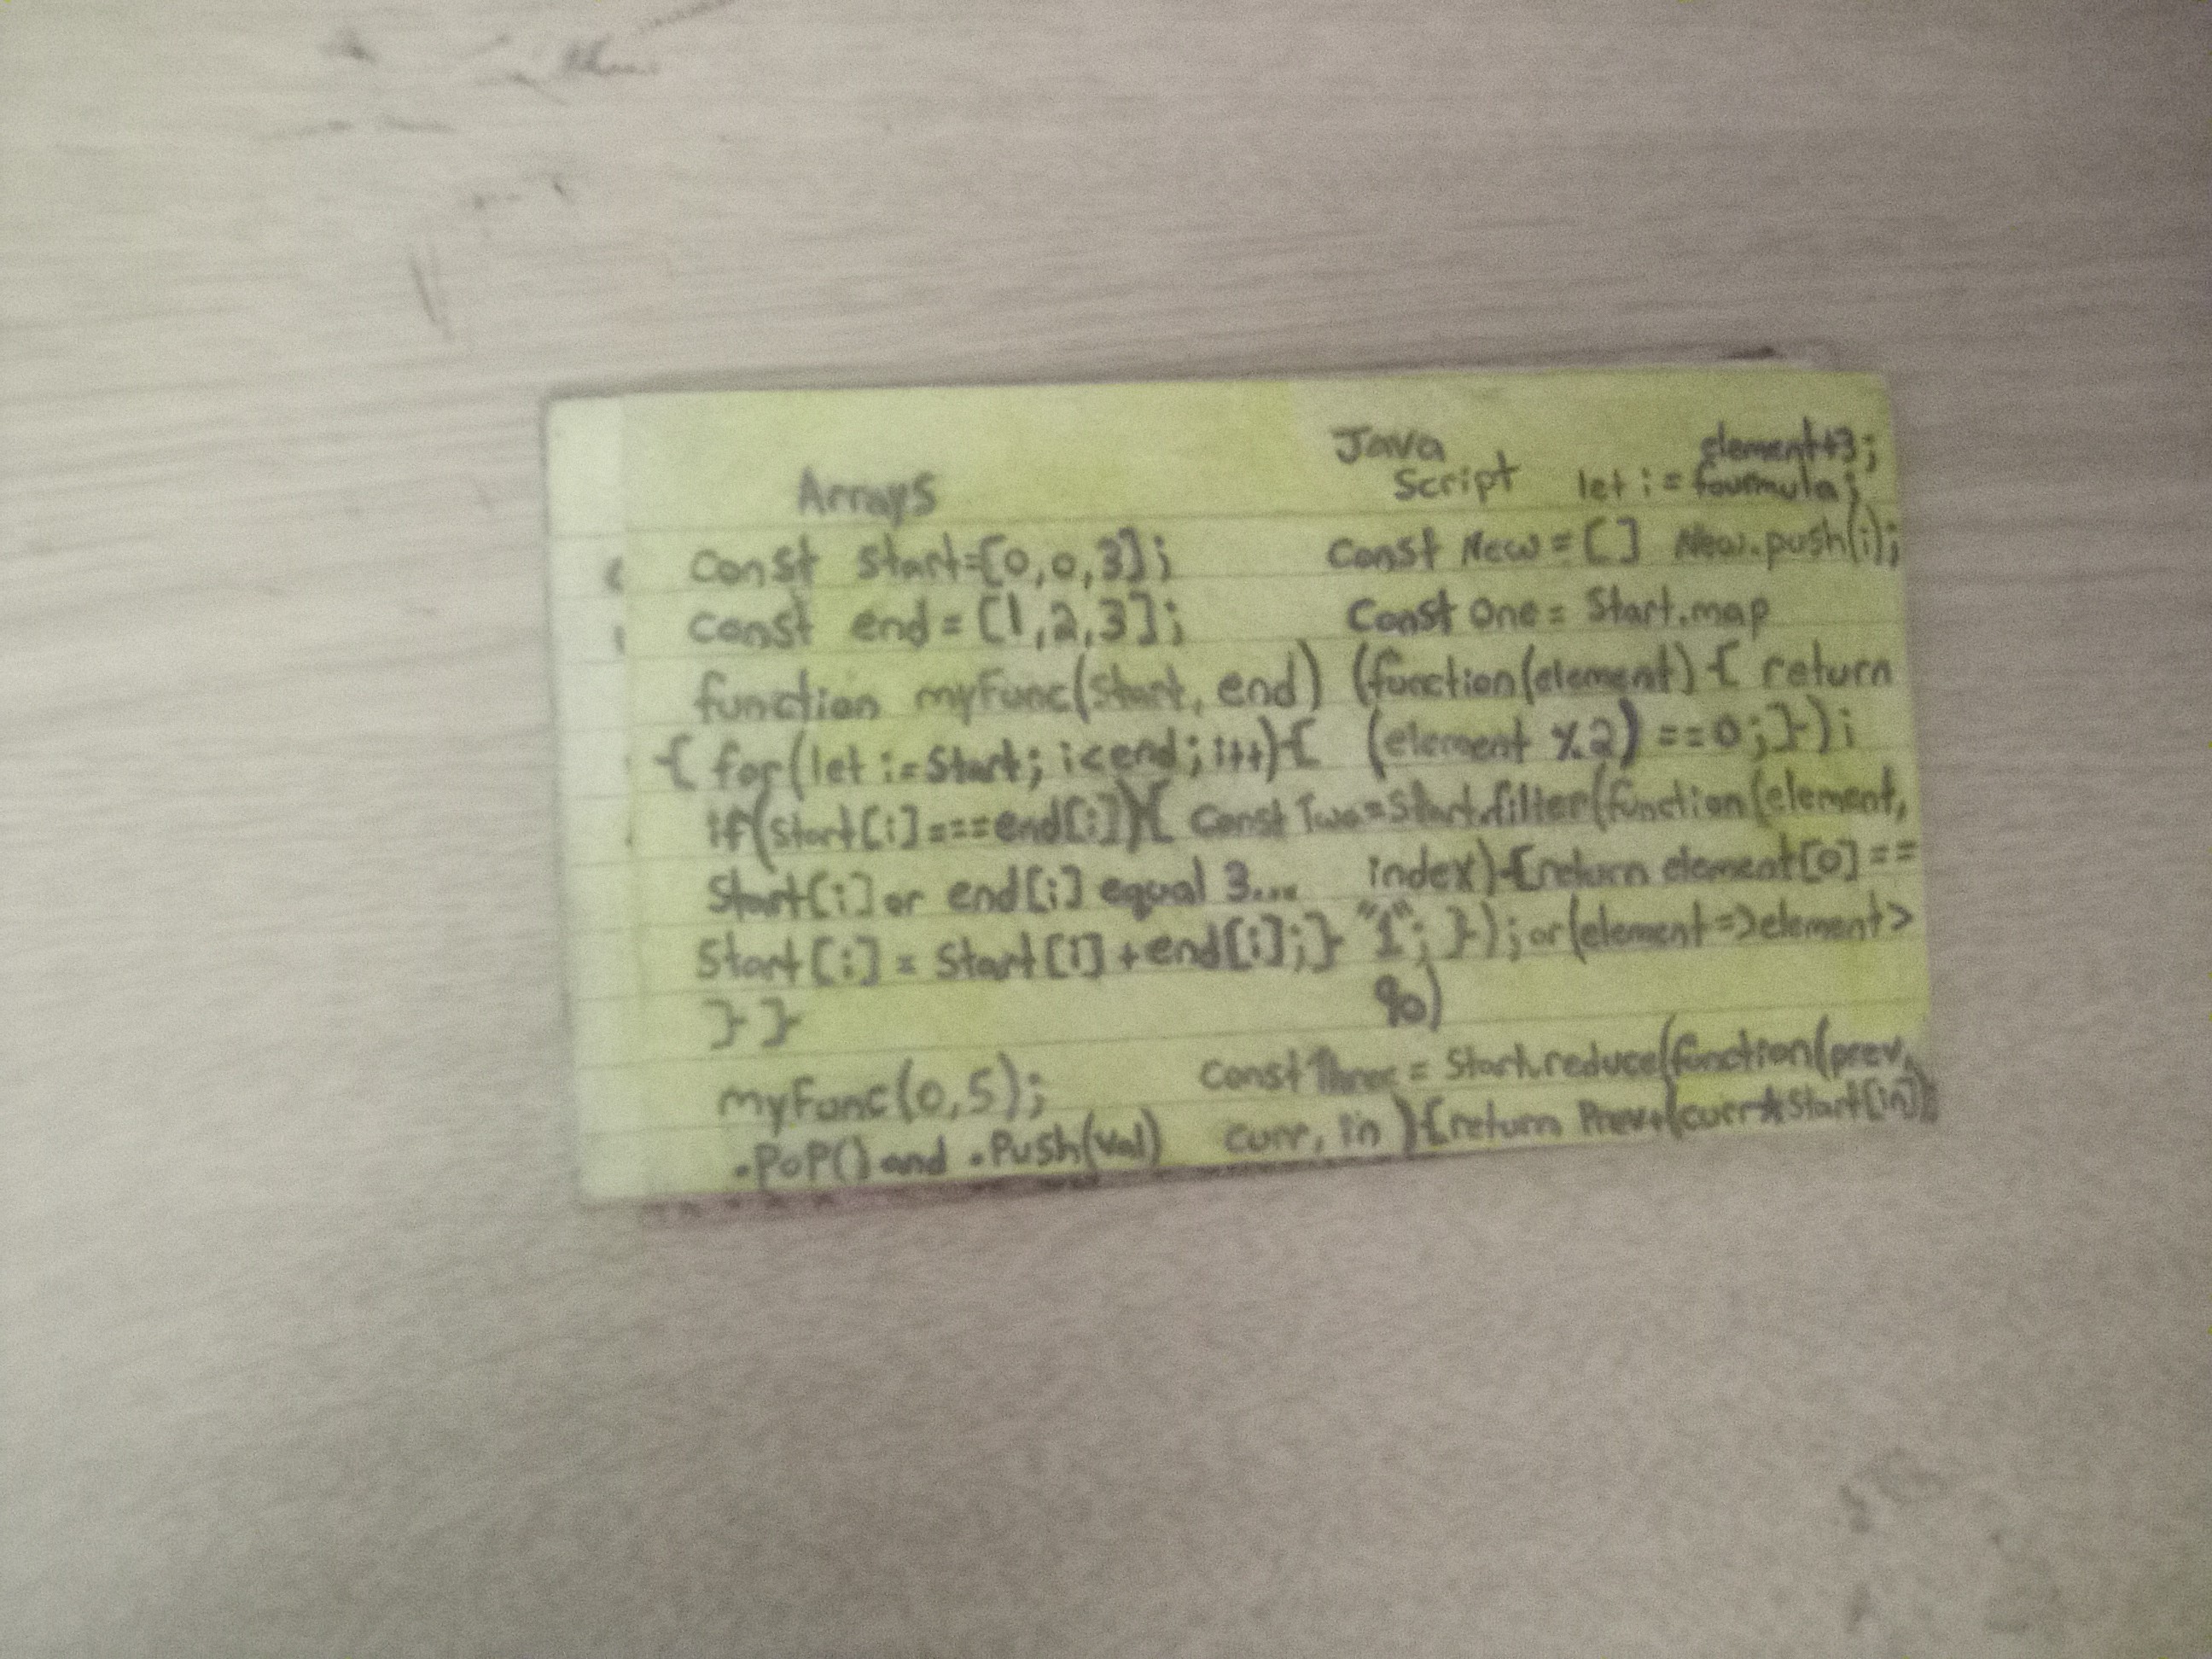 Arrays
const start=[0,0,3];
const end=[1,2,3];
function myFunc(start, end)
{ for(let i=start; i<end; i++){
if(start[i]===end[i]){
start[i] or end[i] equal 3...
start[i] = start[i] +end[i];}
}}
myFunc(0,5);
.PoP() and .Push(val)
Java
Script
element+3;
let i = fourmula;
const New=[] New.push(i);
const one= Start.map
(function(element){ return
(element %2) ==0;});
const Two=Start.filter(function(element,
index){return element[0]==
"1"; }); or(element=>element>
90)
const Three = Start.reduce(function(prev,
curr, in ){return Prev+(curr*Start[in])